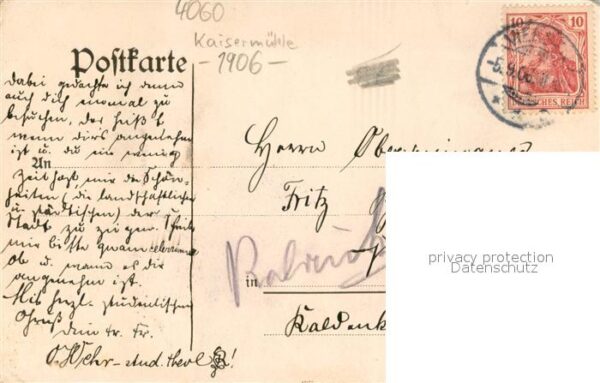 4060
Kaisermühle
-1906-
Postkarte
10 10
5.9.06
DEUTSCHES REICH
Dabei gedachte ich dann
auch dich einmal zu
besuchen, das heißt
wenn dirs angenehm
ist u. du ein wenig
Zeit hast, mir die Schön-
heiten (die landschaftlichen
u. städtischen) der
Stadt zu zeigen. Schreibe
mir bitte
ob u. wann es dir
angenehm ist.
Mit herzl. studentischem
Gruß
dein tr. Fr.
O. Wehr- stud. theol
An
Herrn
Fritz
in
Kaldenk
privacy protection
Datenschutz